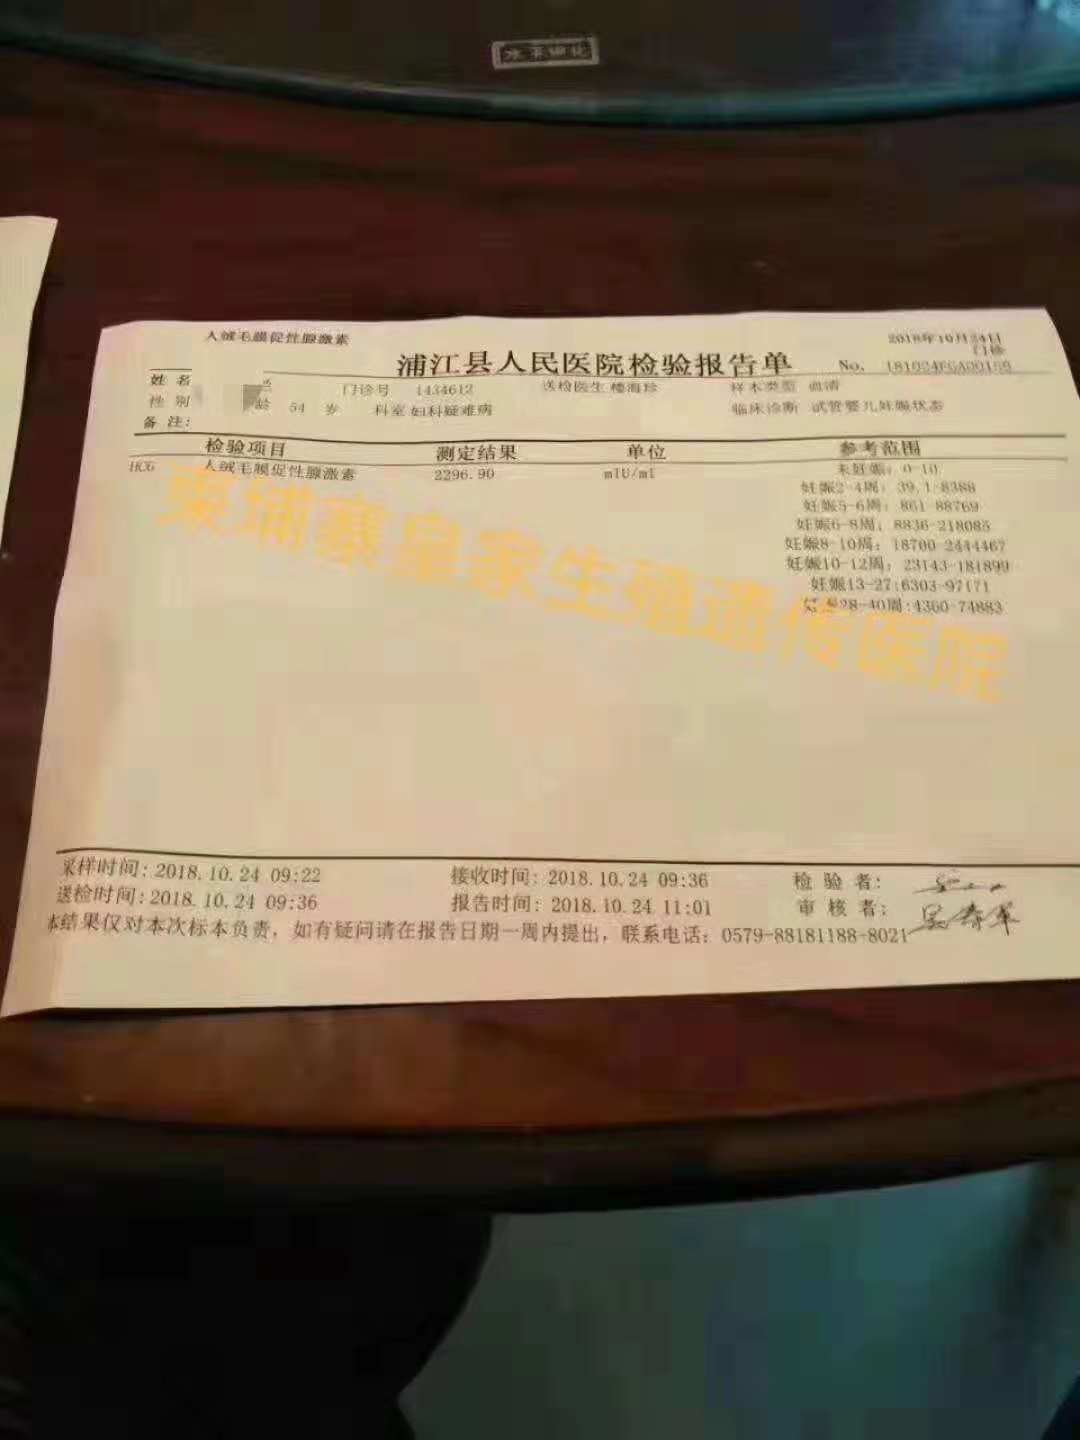 人绒毛膜促性腺激素
2018年10月24日
门诊
浦江县人民医院检验报告单
No.
姓 名
门诊号 1434612 送检医生 楼海珍 样本类型 血清
性 别 龄 54 岁 科室 妇科疑难病 临床诊断 试管婴儿妊娠状态
备 注:
检验项目 测定结果 单位 参考范围
HCG 人绒毛膜促性腺激素 2296.90 mIU/ml 未妊娠: 0-10
妊娠2-4周: 39.1-8388
妊娠5-6周: 861-88769
妊娠6-8周: 8836-218085
妊娠8-10周: 18700-2444467
妊娠10-12周: 23143-181899
妊娠13-27:6303-97171
28-40周:4360-74883
柬埔寨皇家生殖遗传医院
采样时间: 2018.10.24 09:22 接收时间: 2018.10.24 09:36 检 验 者:
送检时间: 2018.10.24 09:36 报告时间: 2018.10.24 11:01 审 核 者:
本结果仅对本次标本负责, 如有疑问请在报告日期一周内提出, 联系电话: 0579-88181188-8021